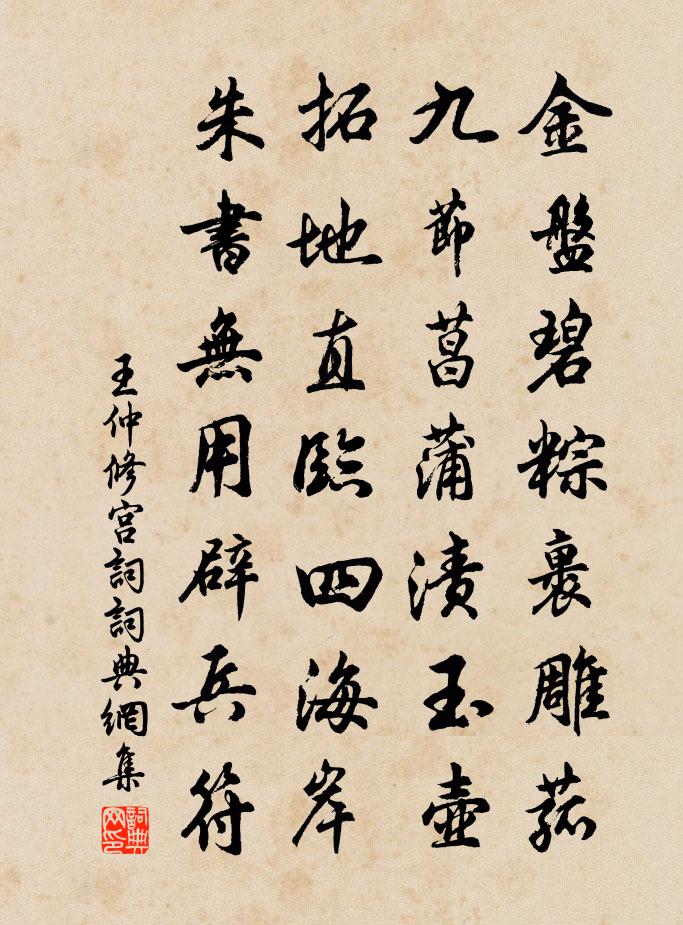 金盤碧粽裹雕菰
九節菖蒲漬玉壺
拓地直臨四海岸
朱書無用辟兵符
王仲修宮詞詞典網集
詞典网印